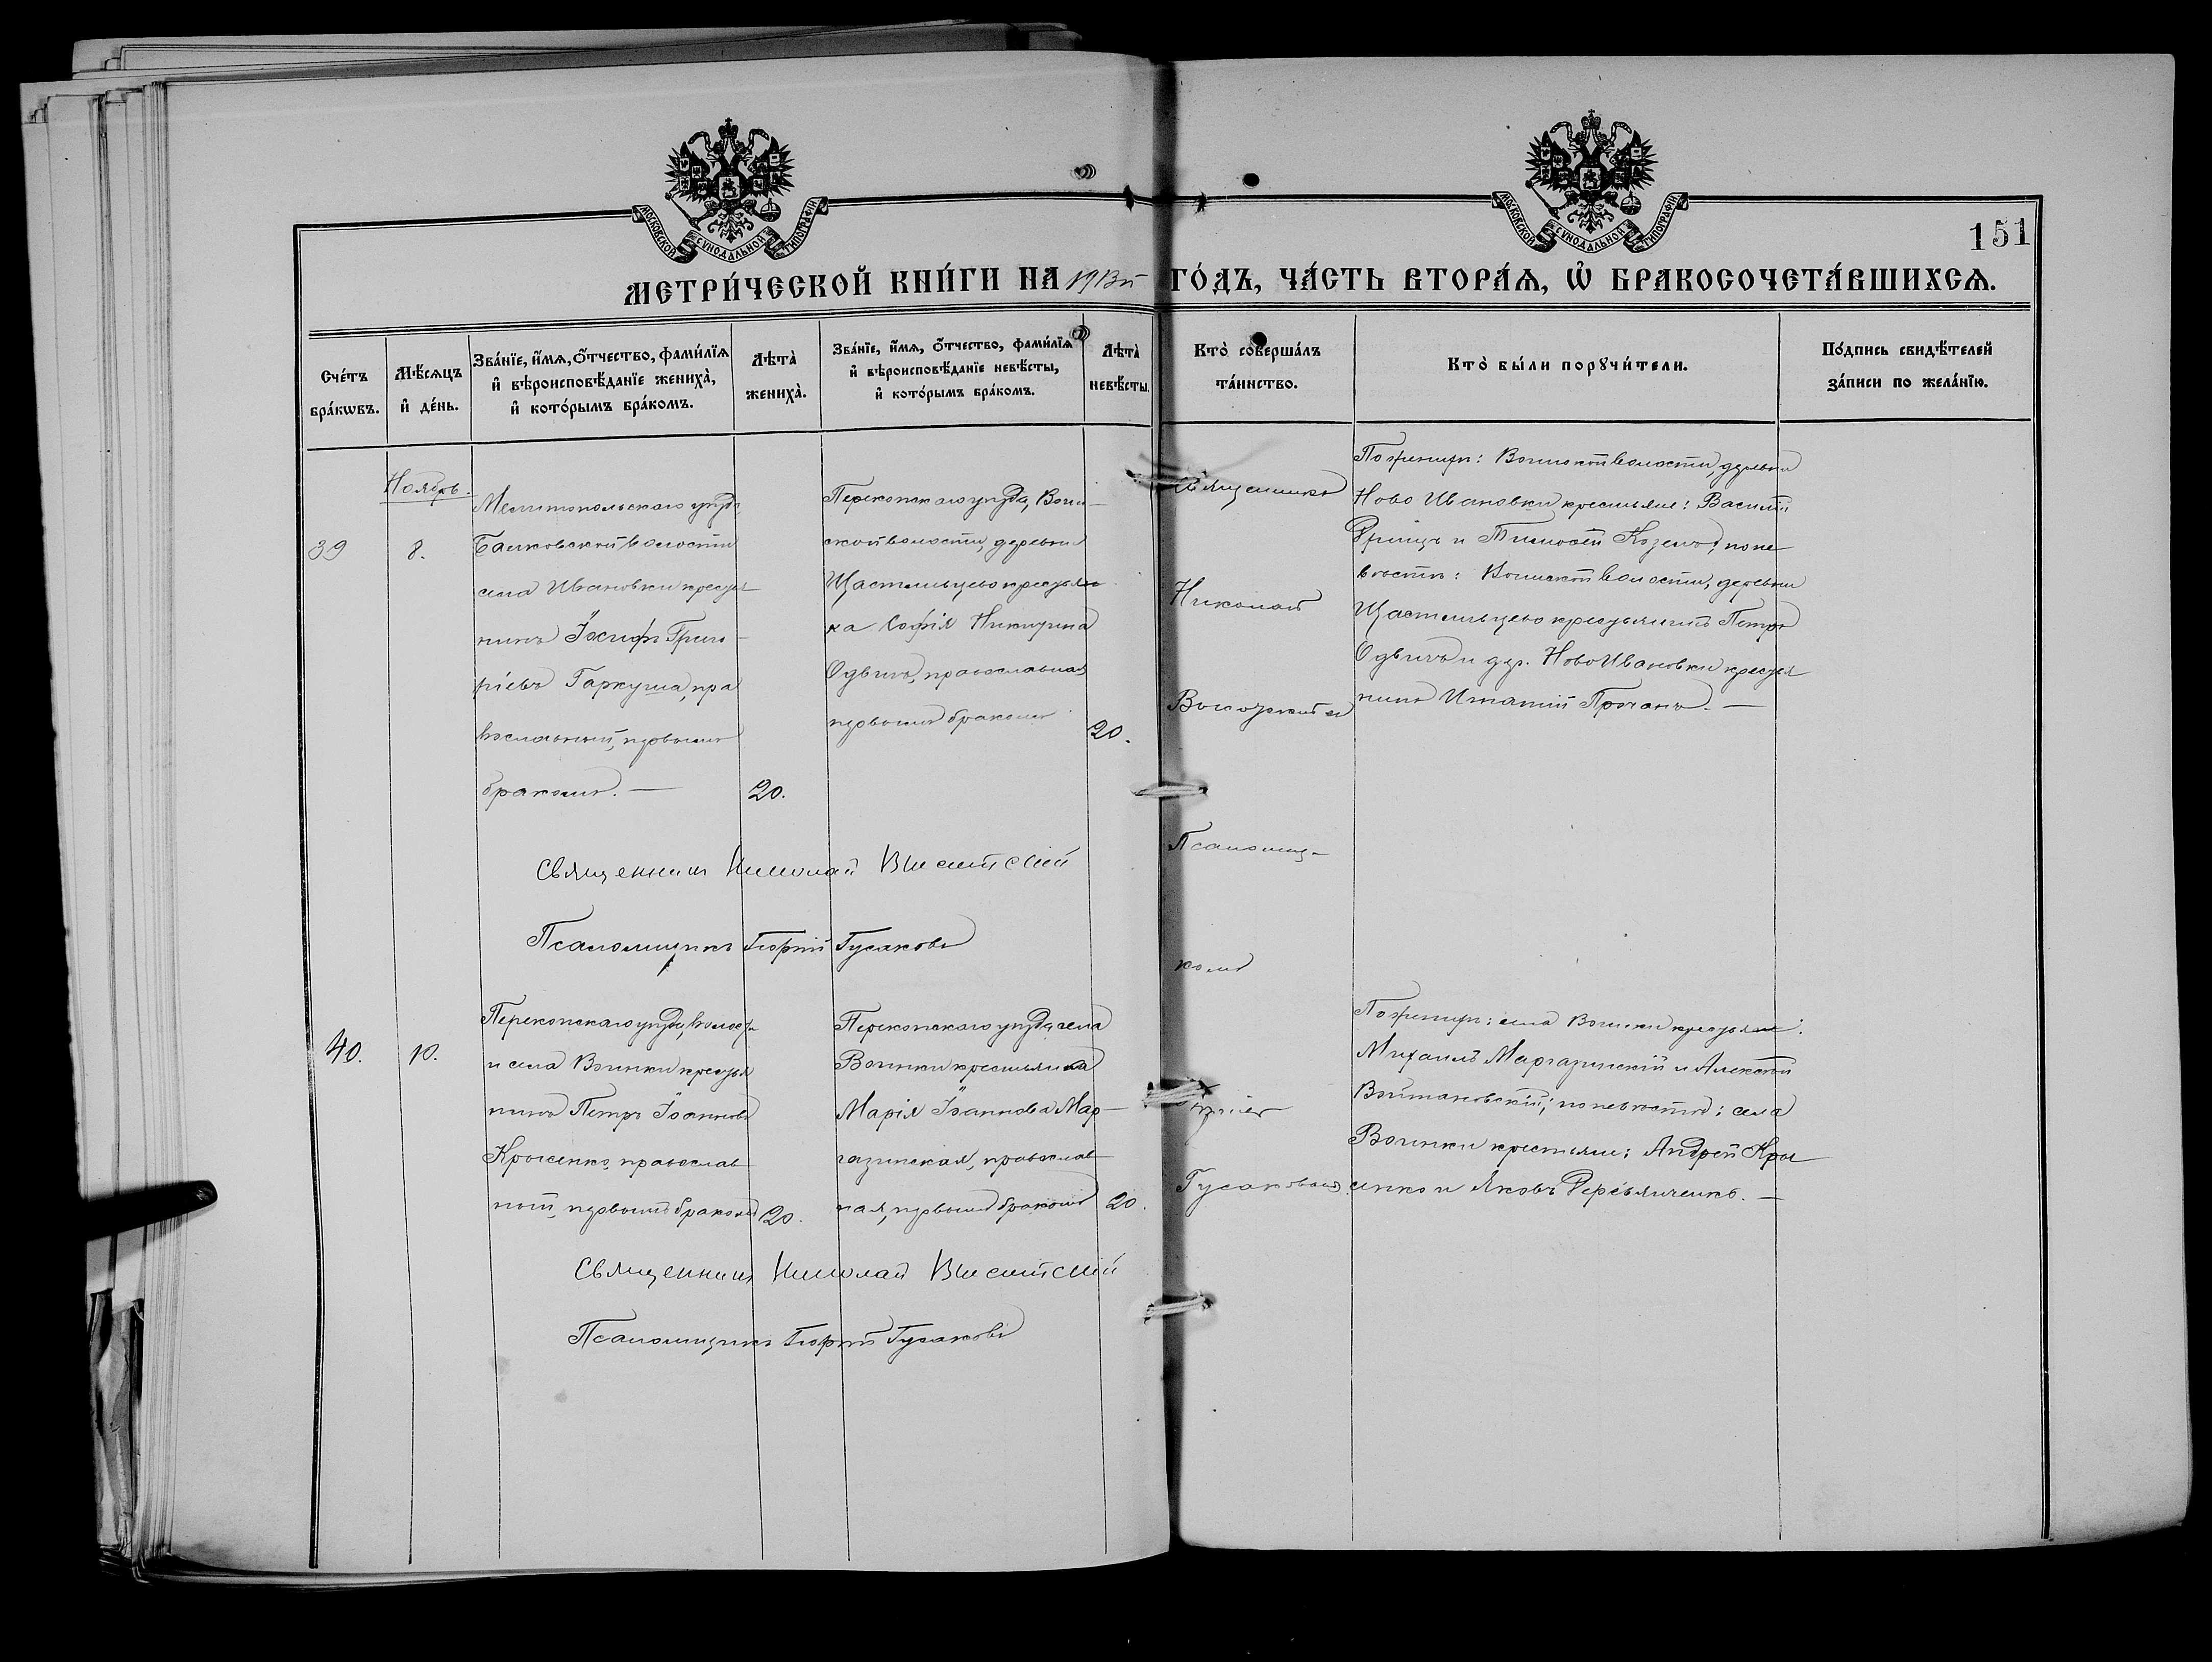 МОСКОВСКОЙ СѴНОДАЛЬНОЙ ТИПОГРАФІИ
МОСКОВСКОЙ СѴНОДАЛЬНОЙ ТИПОГРАФІИ
151
МЕТРИ́ЧЕСКОЙ КНИ́ГИ НА 1913й ГО́ДЪ, ЧА́СТЬ ВТОРА́Ѧ, Ѡ҆ БРАКОСОЧЕТА́ВШИХСѦ.
Сче́тъ бра́кѡвъ.
Мѣ́сѧцъ и҆ де́нь.
Зва́нїе, и҆́мѧ, о҆́тчество, фами́лїѧ и҆ вѣроисповѣ́данїе жениха̀, и҆ кото́рымъ бра́комъ.
Лѣта̀ жениха̀.
Зва́нїе, и҆́мѧ, о҆́тчество, фами́лїѧ и҆ вѣроисповѣ́данїе невѣ́сты, и҆ кото́рымъ бра́комъ.
Лѣта̀ невѣ́сты.
Кто̀ соверша́лъ та́инство.
Кто̀ бы́ли порꙋчи́тели.
По́дпись свидѣ́телей за́писи по жела́нїю.
39
Ноябрь.
8.
Мелитопольскаго уѣзда,
Балковской волости
села Ивановки крестья
нинъ Іосифъ Григо-
ріевъ Гаркуша, пра
вославный, первымъ
бракомъ. —
20.
Перекопскаго уѣзда, Воин-
ской волости, деревни
Щастливцево крестьян
ка Софія Никитина
Одвичъ, православная
первымъ бракомъ
20.
Священникъ
Николай
Высотскій и
Псаломщ-
комъ
Гусаковымъ.
По женихѣ: Воинской волости, деревни
Ново Ивановки крестьяне: Василій
и Тимофей Козелъ; по не
вѣстѣ: Воинской волости, деревни
Щастливцево крестьянинъ Петръ
Одвичъ и дер. Ново Ивановки крестья
нинъ Игнатій Прочанъ. —
Священникъ Николай Высотскій
Псаломщикъ Георгій Гусаковъ
40.
10.
Перекопскаго уѣзда, волости
и села Воинки крестья
нинъ Петръ Іоанновъ
Крысенко, православ
ный, первымъ бракомъ
20.
Перекопскаго уѣзда, села
Воинки крестьянка
Марія Іоаннова Мар-
газинская, православ
ная, первымъ бракомъ
20.
По женихѣ: села Воинки крестьяне:
Михаилъ Маргазинскій и Алексѣй
Войтановскій; по невѣстѣ: села
Воинки крестьяне: Андрей Кры
сенко и Яковъ Деревянченко. —
Священникъ Николай Высотскій
Псаломщикъ Георгій Гусаковъ